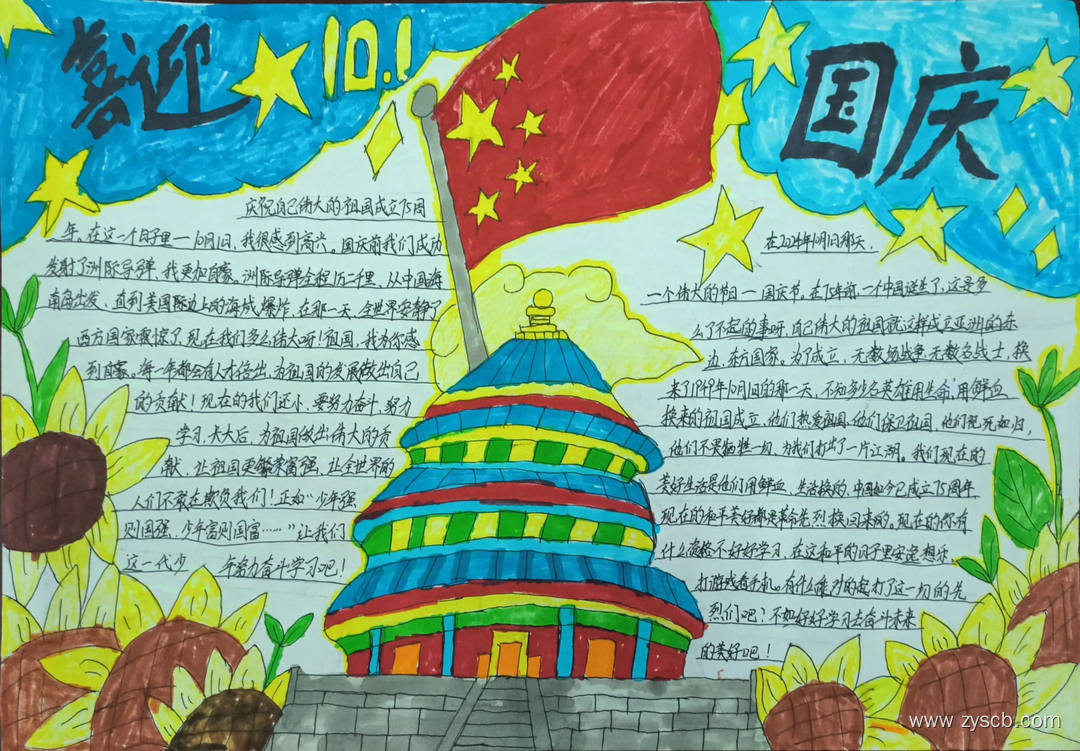 喜迎
10.1
国庆
庆祝自己伟大的祖国成立75周
年、在这一个日子里一10月1日,我很感到高兴。国庆前我们成功
发射了洲际导弹、我更加自豪。洲际导弹全程万二千里、从中国海
南岛出发、直到美国附近上的海域爆炸、在那一天、全世界安静了
西方国家震惊了、现在我们多么伟大呀!祖国,我为你感
到自豪。每一年都会有人才倍出、为祖国的发展做出自己
的贡献!现在的我们还小、要努力奋斗、努力
学习、长大后、为祖国做出伟大的贡
献、让祖国更繁荣富强、让全世界的
人们不敢在欺负我们!正如“少年强、
则国强、少年富则国富……”让我们
这一代少 年努力奋斗学习吧!
在2024年10月1日那天、
一个伟大的节日一国庆节。在75年前、一个中国诞生了、这是多
么了不起的事呀、自己伟大的祖国就这样成立亚洲的东
边、东方国家、为了成立、无数场战争、无数名战士、换
来了1949年10月1日的那一天、不知多少名英雄用生命、用鲜血
换来的祖国成立、他们热爱祖国、他们保卫祖国、他们视死如归,
他们不畏牺牲一切、为我们打出了一片江湖。我们现在的
美好生活是他们用鲜血、生活换的、中国如今已成立75周年、
现在的和平美好都是革命先烈换回来的。现在的你有
什么资格不好好学习、在这和平的日子里安逸想乐
打游戏看手机。有什么 对的起打了这一切的先
烈们吧?不如好好学习去奋斗未来
的美好吧!
www.zyscb.com